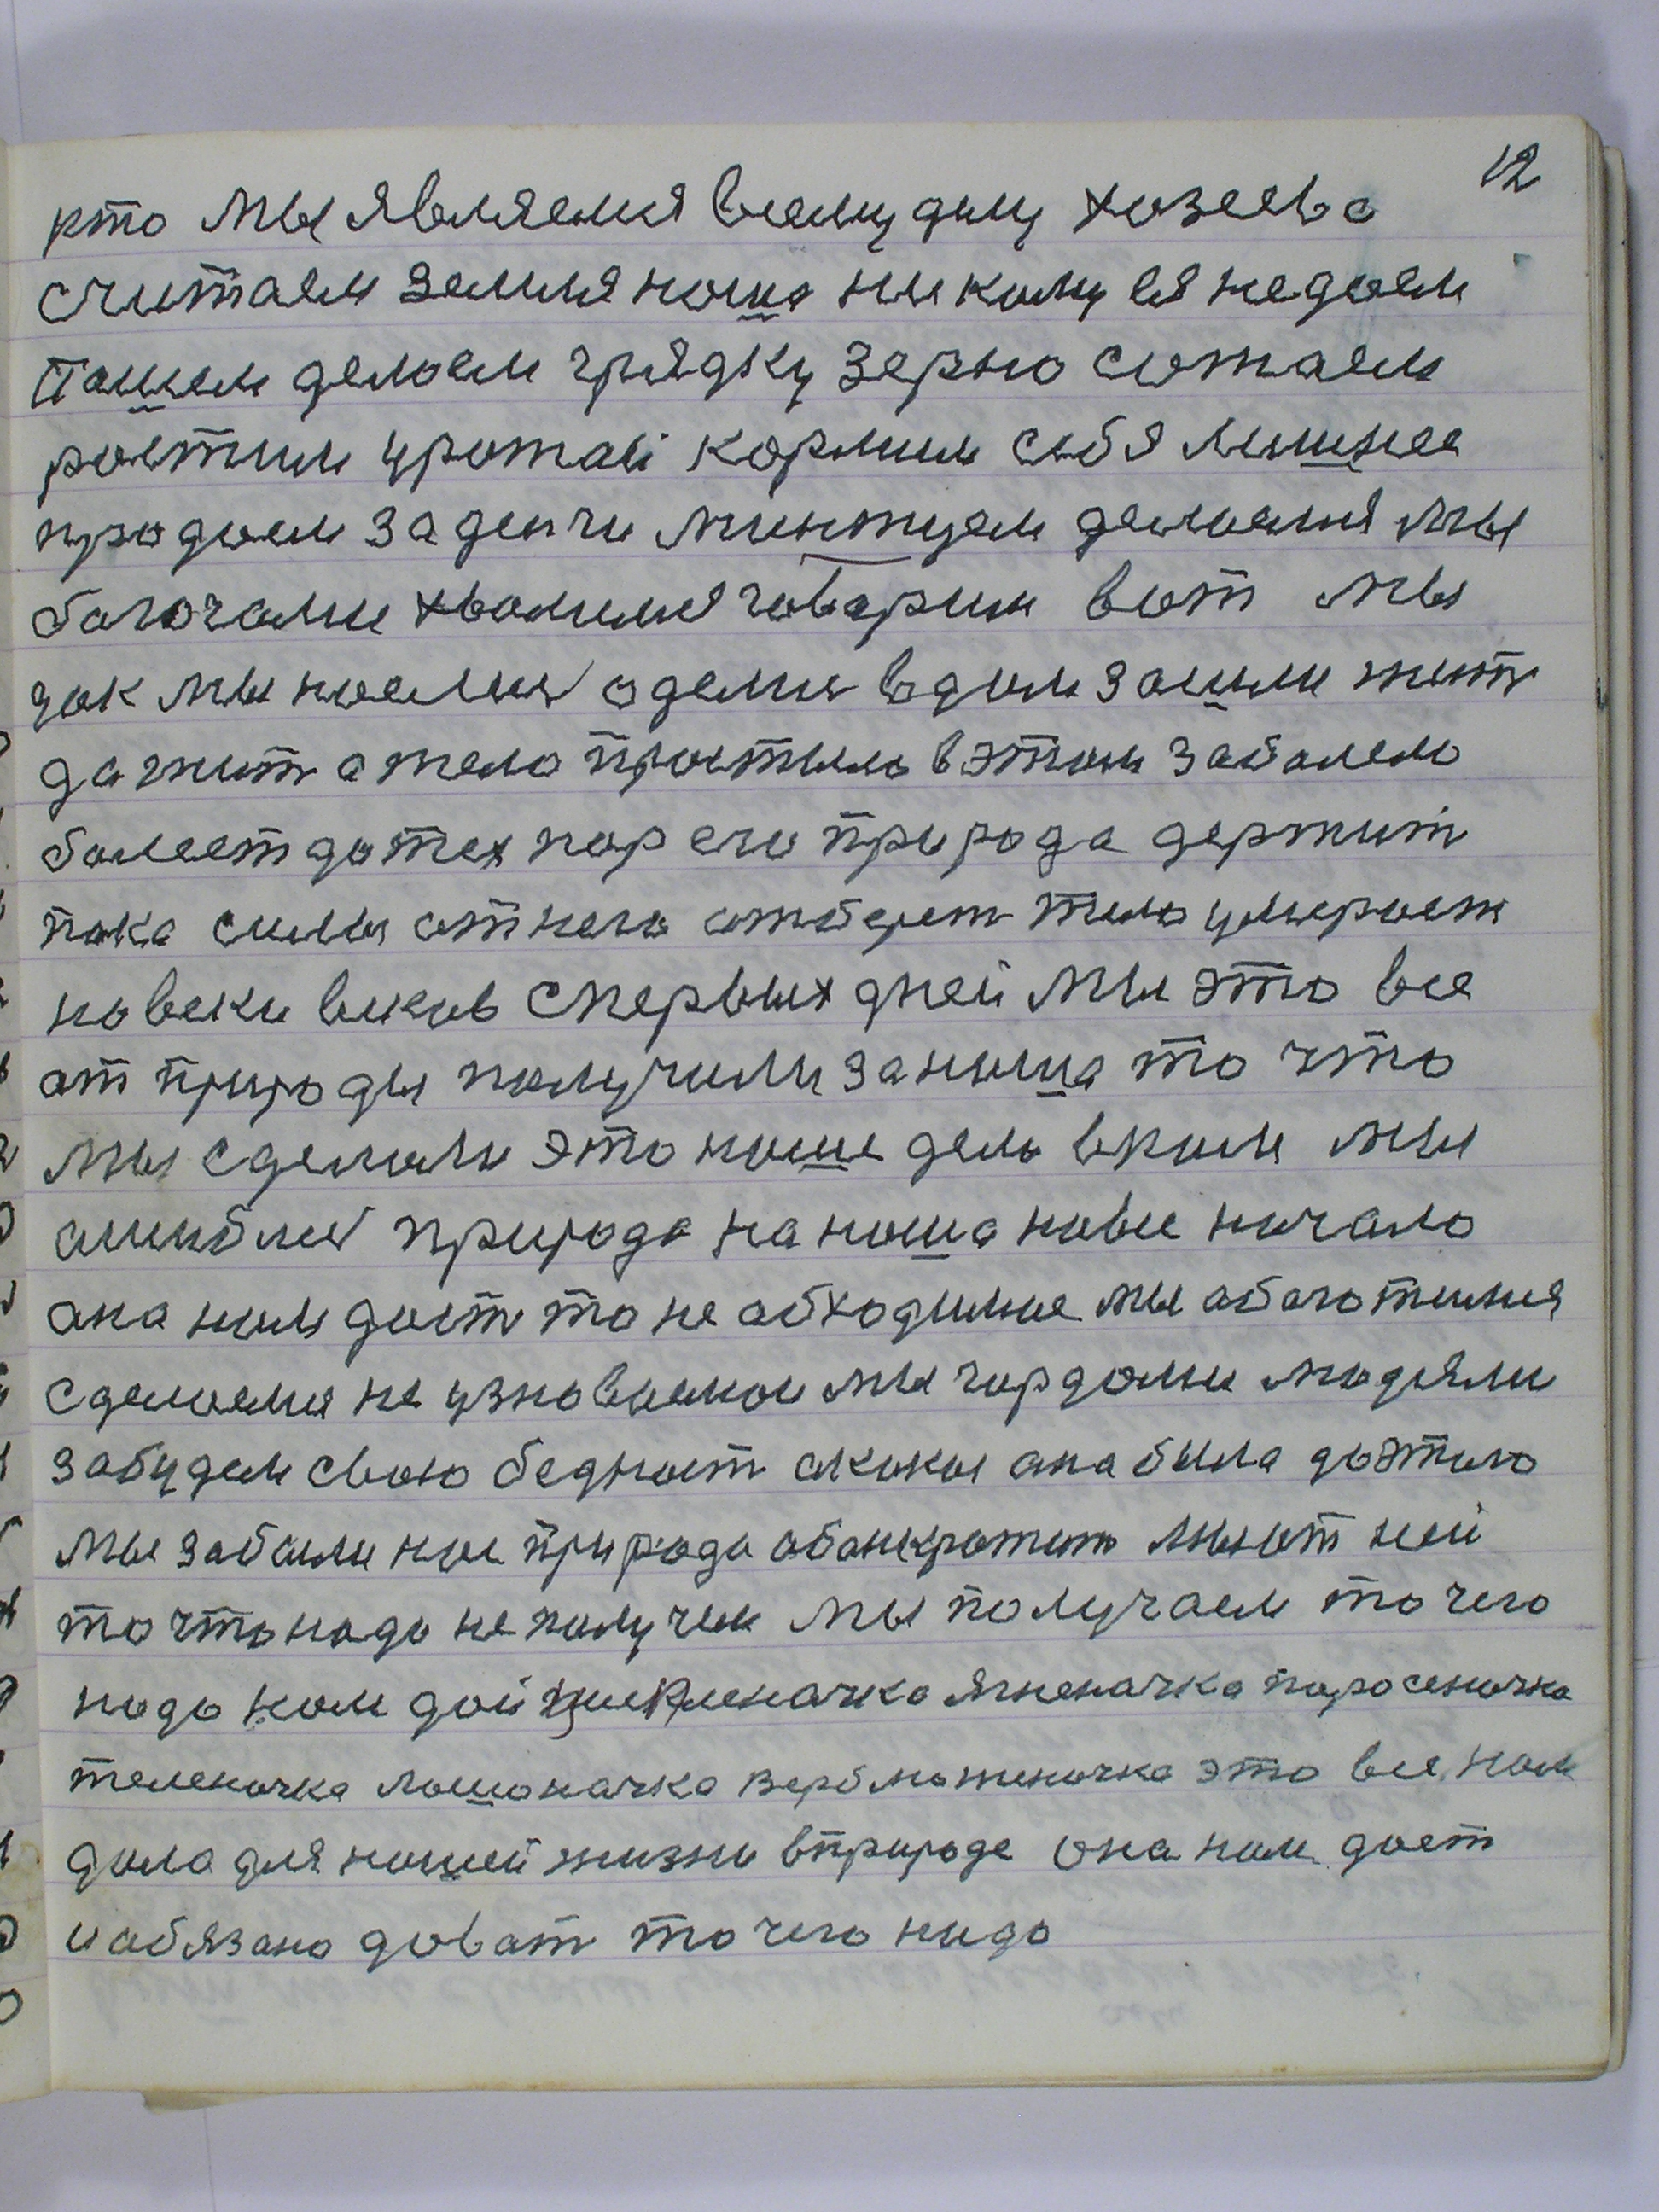 12
кто мы являемся всему делу хозяева
считаем земля наша никому ея недаем
Пашем делаем грядку зерно сажаем
ростим урожай кормим себя лишнее
продаем за денги жинжуем делаемся мы
богочами хвалимся говорим вот мы
дак мы наелись оделись в дом зашли жит
да жит а тело простыло в этом заболело
болеет до тех пор его природа держит
пока силы от него отберет тело умерает
на веки веков С первых дней мы это все
от природы получили за наша то что
мы сделали это наше дело в ком мы
ошиблись природа на наша новое начало
она нам дает то не обходимое мы обагатимся
сделаемся не узноваемое мы гордами людями
забудем свою бедност ококоя она была до этого
мы забыли нас природа обанкротит мы от ней
то что надо не получем мы получаем то чего
надо нам дай ягненачка паросеночка
теленочка лошоначка верблюженочка это все нам
дала для нашей жизни в природе она нам дает
и обязана дават то чего надо